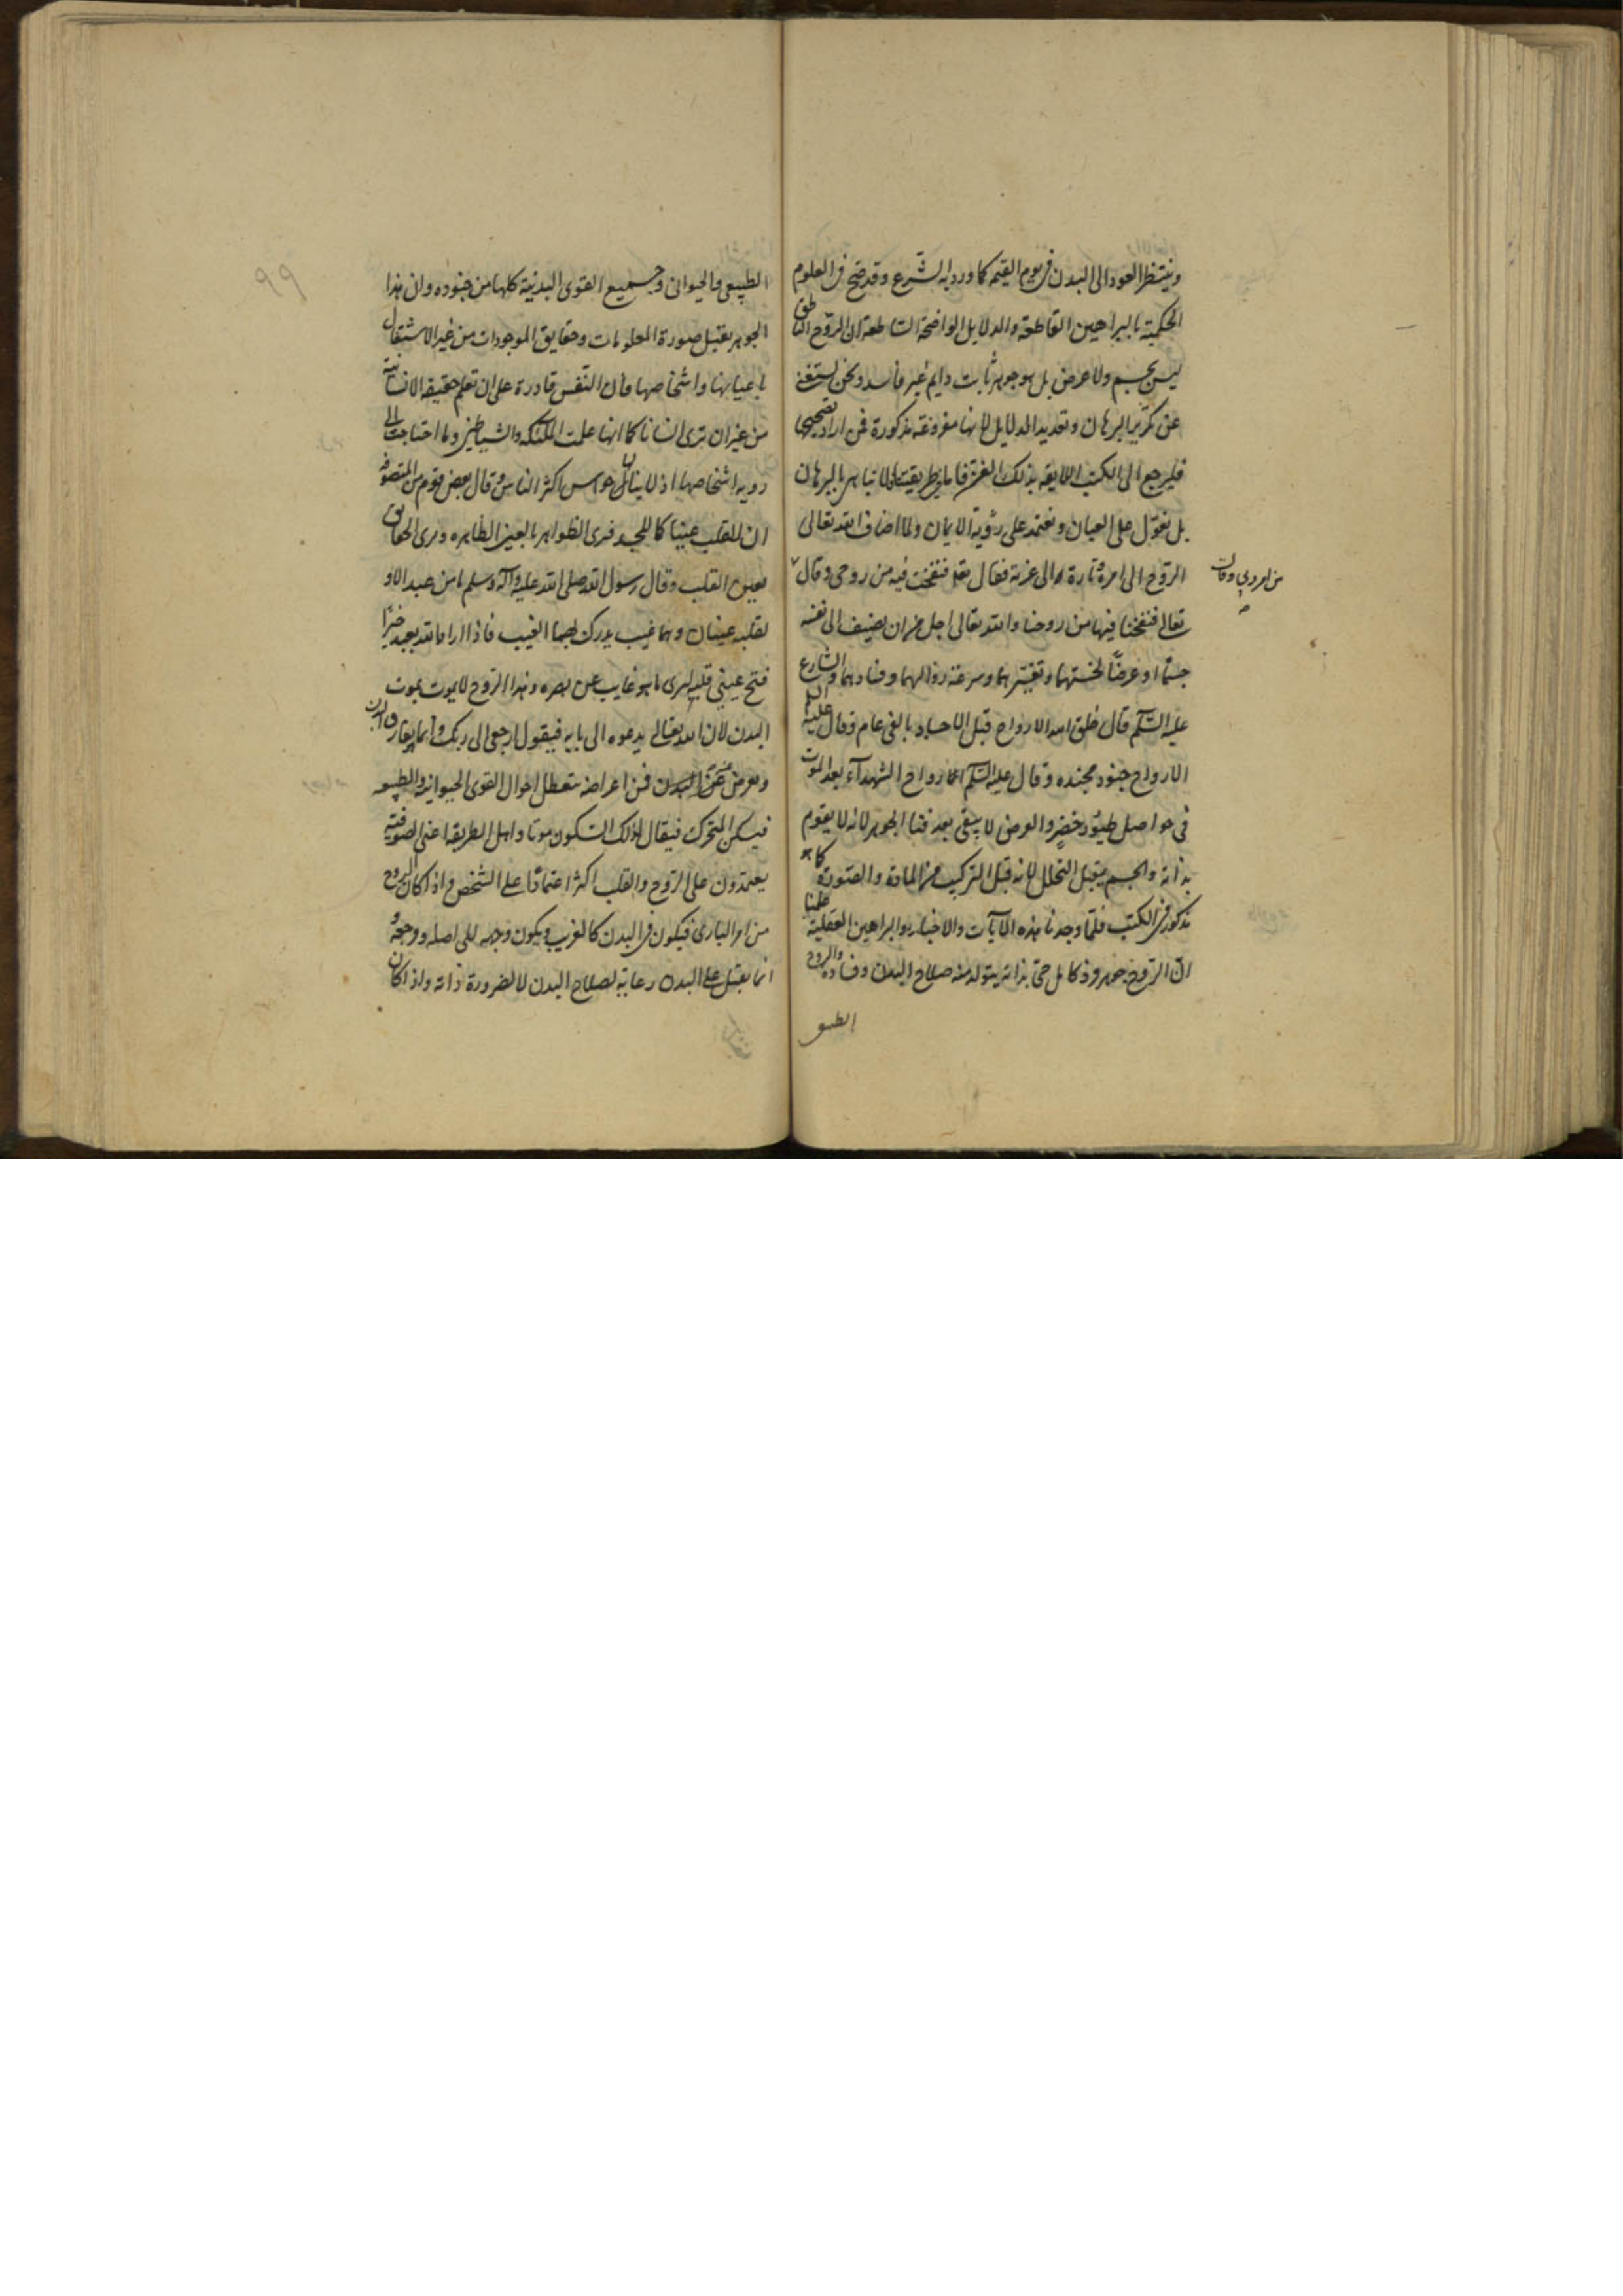 وينتظر العود الى البدن فى يوم القيمه كما ورد به الشرع وقد صح فى العلوم
الحكمية بالبراهين القاطعة والدلايل الواضحة الساطعة ان الروح الناطق
ليس بجسم ولا عرض بل هو جوهر ثابت دايم غير فاسد ونحن نستغنى
عن تكرير البرهان وتعديد الدلايل لانها مفروغة مذكورة فمن اراد تصحيحها
فليرجع الى الكتب اللايقه بذلك الفن فاما فى طريقتنا لا نباهى البرهان
بل نعول على العيان ونعتمد على رؤية الايمان ولما اضاف الله تعالى
الروح الى امره تارة والى عزته فقال تعالى فنفخت فيه من روحى وقال
من امر ربي وقال
تعالى فنفخنا فيها من روحنا والله تعالى اجل من ان يضيف الى نفسه
جسما او عرضا لخستهما وتغيرهما وسرعة زوالهما وفسادهما والشارع
عليه السلم قال خلق الله الارواح قبل الاجساد بالفى عام وقال عليه السلم
الارواح جنود مجنده وقال عليه السلم ارواح الشهدآء بعد الموت
فى حواصل طيور خضر والعرض لا يبقى بعد فنا الجوهر لانه لا يقوم
بذاته والجسم يقبل التحلل لانه قبل التركيب من المادة والصورة كما هو
مذكور فى الكتب فلما وجدنا هذه الآيات والاخبار والبراهين العقلية علمنا
ان الروح جوهر فرد كامل حى بذاته يتولد منه صلاح البدن وفساده والروح
الطبيعى
٩٩
الطبيعى والحيوانى وجميع القوى البدنية كلها من جنوده وان هذا
الجوهر يقبل صورة المعلومات وحقايق الموجودات من غير الاشتغال
باعيانها واشخاصها فان النفس قادرة على ان تعلم حقيقه الانسانية
من غير ان ترى انسانا كما انها علمت الملئكه والشياطين وما احتاجت الى
رويه اشخاصها اذ لا ينالهن حواس اكثر الناس وقال بعض قوم من المتصوفه
ان للقلب عينا كما للجسد فيرى الظواهر بالعين الظاهره ويرى الحقايق
بعين القلب وقال رسول الله صلى الله عليه وآله وسلم ما من عبد الا و
لقلبه عينان وهما غيب يدرك بهما الغيب فاذا اراد الله بعبد خيرا
فتح عينى قلبه ليرى ما هو غايب عن بصره وهذا الروح لا يموت بموت
البدن لان الله تعالى يدعوه الى بابه فيقول ارجعى الى ربك وانما يفارق البدن
ويعرض عن البدن فمن اعراضه يتعطل احوال القوى الحيوانيه والطبيعيه
فيسكن المتحرك فيقال لذلك السكون موتا واهل الطريقه اعنى الصوفية
يعتمدون على الروح والقلب اكثر اعتمادا على الشخص واذا كان الروح
من امر البارى فيكون فى البدن كالغريب ويكون وجهه الى اصله ومرجعه و
انما يقبل على البدن رعاية لصلاح البدن لا لضرورة ذاته واذا كان